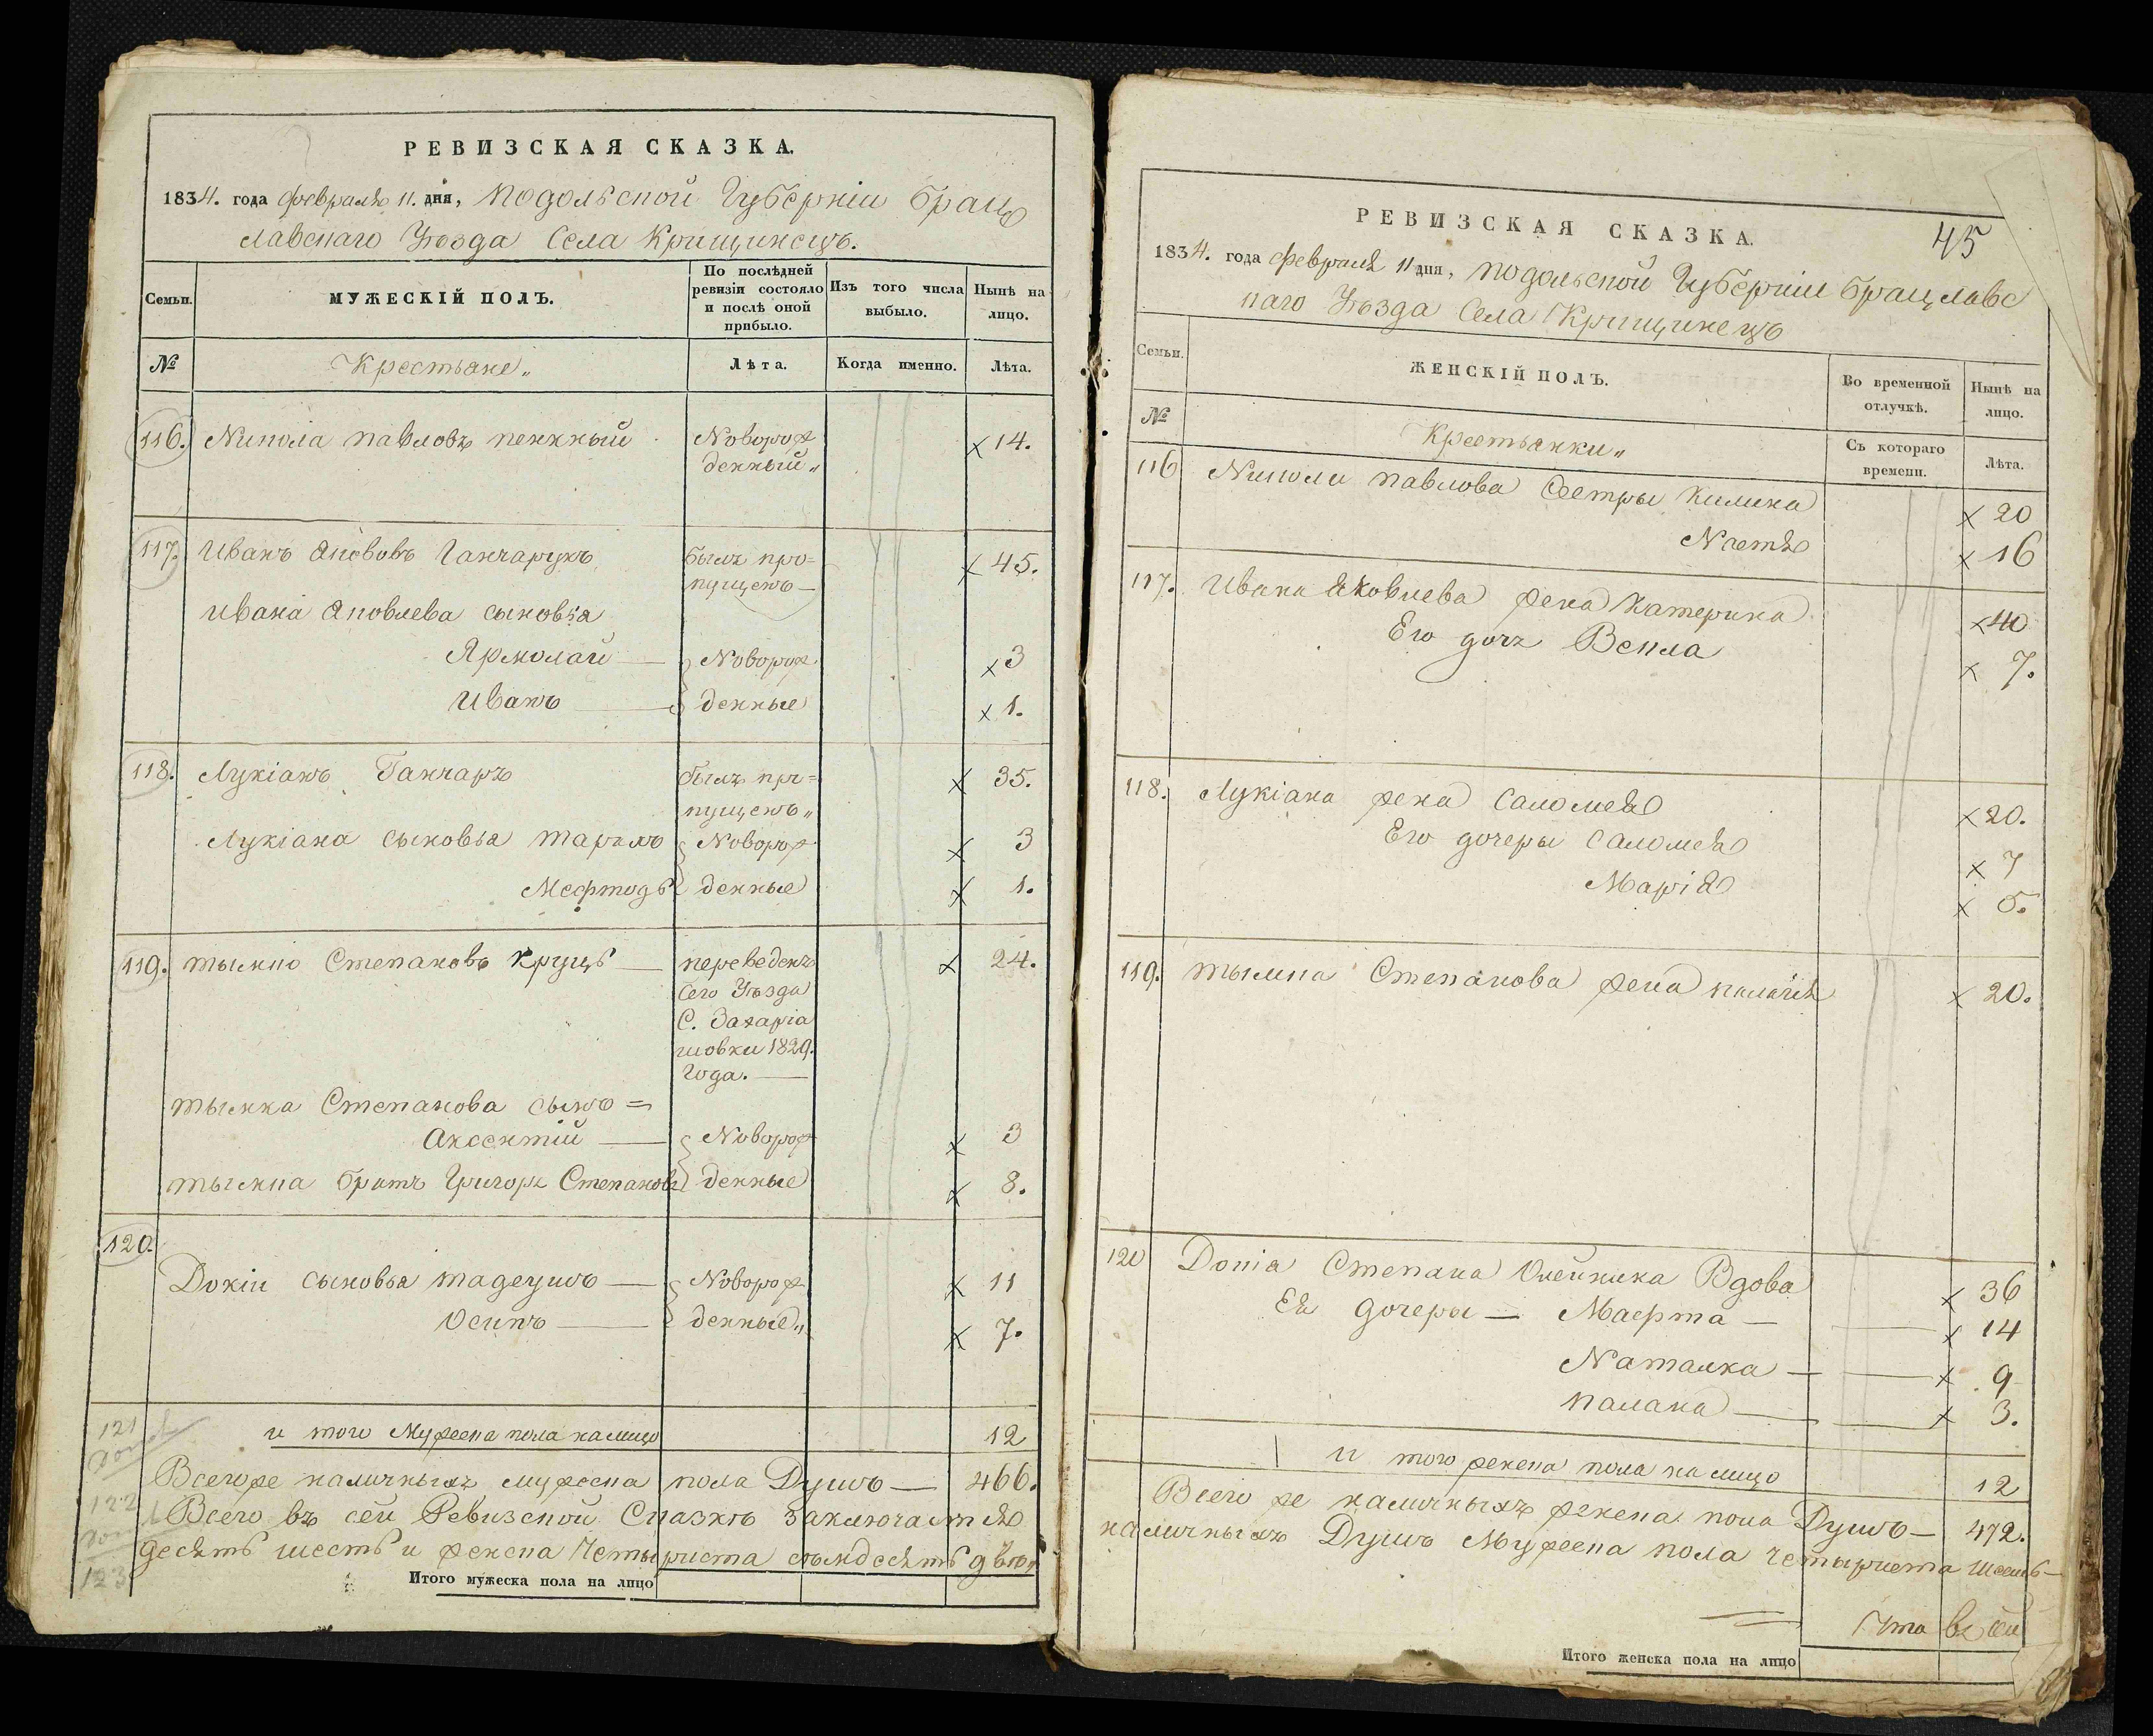 РЕВИЗСКАЯ СКАЗКА.
1834. года февраля 11. дня, Подольской Губерніи Брац
лавскаго Уѣзда Села Крищинецъ.
Семьи.
МУЖЕСКІЙ ПОЛЪ.
По послѣдней
ревизіи состояло
и послѣ оной
прибыло.
Изъ того числа
выбыло.
Нынѣ на
лицо.
№
Крестьяне„
Лѣта.
Когда именно.
Лѣта.
116. Никола Павловъ Новорож x 14.
денный„
117. Иванъ Якововъ Ганчарукъ былъ про= x 45.
пущенъ —
Ивана Яковлева сыновья
Ярмолай — Новорож x 3
Иванъ — денные x 1.
118. Лукіанъ Ганчаръ былъ про= x 35.
пущенъ„
Лукіана сыновья Тарасъ Новорож x 3
Мефтодь денные x 1.
119. Тымко Степановъ Круць — переведенъ x 24.
сего Уѣзда
С. Захарія
шовки 1829.
года. —
Тымка Степанова сынъ =
Аксентій — Новорож x 3
Тымка братъ Григоръ Степановъ денные x 8.
120.
Докіи сыновья Тадеушъ — Новорож x 11
Осипъ — денные„ x 7.
121
и того Мужеска пола налицо 12
Всего же наличныхъ мужеска пола Душъ — 466.
122
Всего въ сей Ревизской Сказкѣ заключается
десять шесть и женска Четыриста семдесять двѣ
123
Итого мужеска пола на лицо
45
РЕВИЗСКАЯ СКАЗКА.
1834. года февраля 11 дня, Подольской Губерніи Брацлавс
каго Уѣзда Села Крищинецъ
Семьи.
ЖЕНСКІЙ ПОЛЪ.
Во временной
отлучкѣ.
Нынѣ на
лицо.
№
Крестьянки„
Съ котораго
времени.
Лѣта.
116 Николи Павлова Сестры Килина x 20
Настя x 16
117. Ивана Яковлева жена Катерина x 40
Его дочь Векла x 7.
118. Лукіана жена Саломея x 20.
Его дочеры Саломея x 7
Марія x 5.
119. Тымка Степанова жена x 20.
120 Докіа Степана Олейника Вдова x 36
Ея дочеры — Марфта — x 14
Наталка — x 9
Палажа — x 3.
и того женска пола на лицо 12
Всего же наличныхъ женска пола Душъ — 472.
наличныхъ Душъ Мужеска пола четыриста шесть —
Итого женска пола на лицо